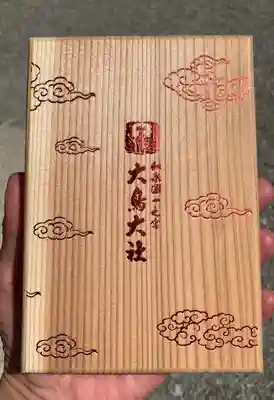 和泉國一之宮
大鳥大社